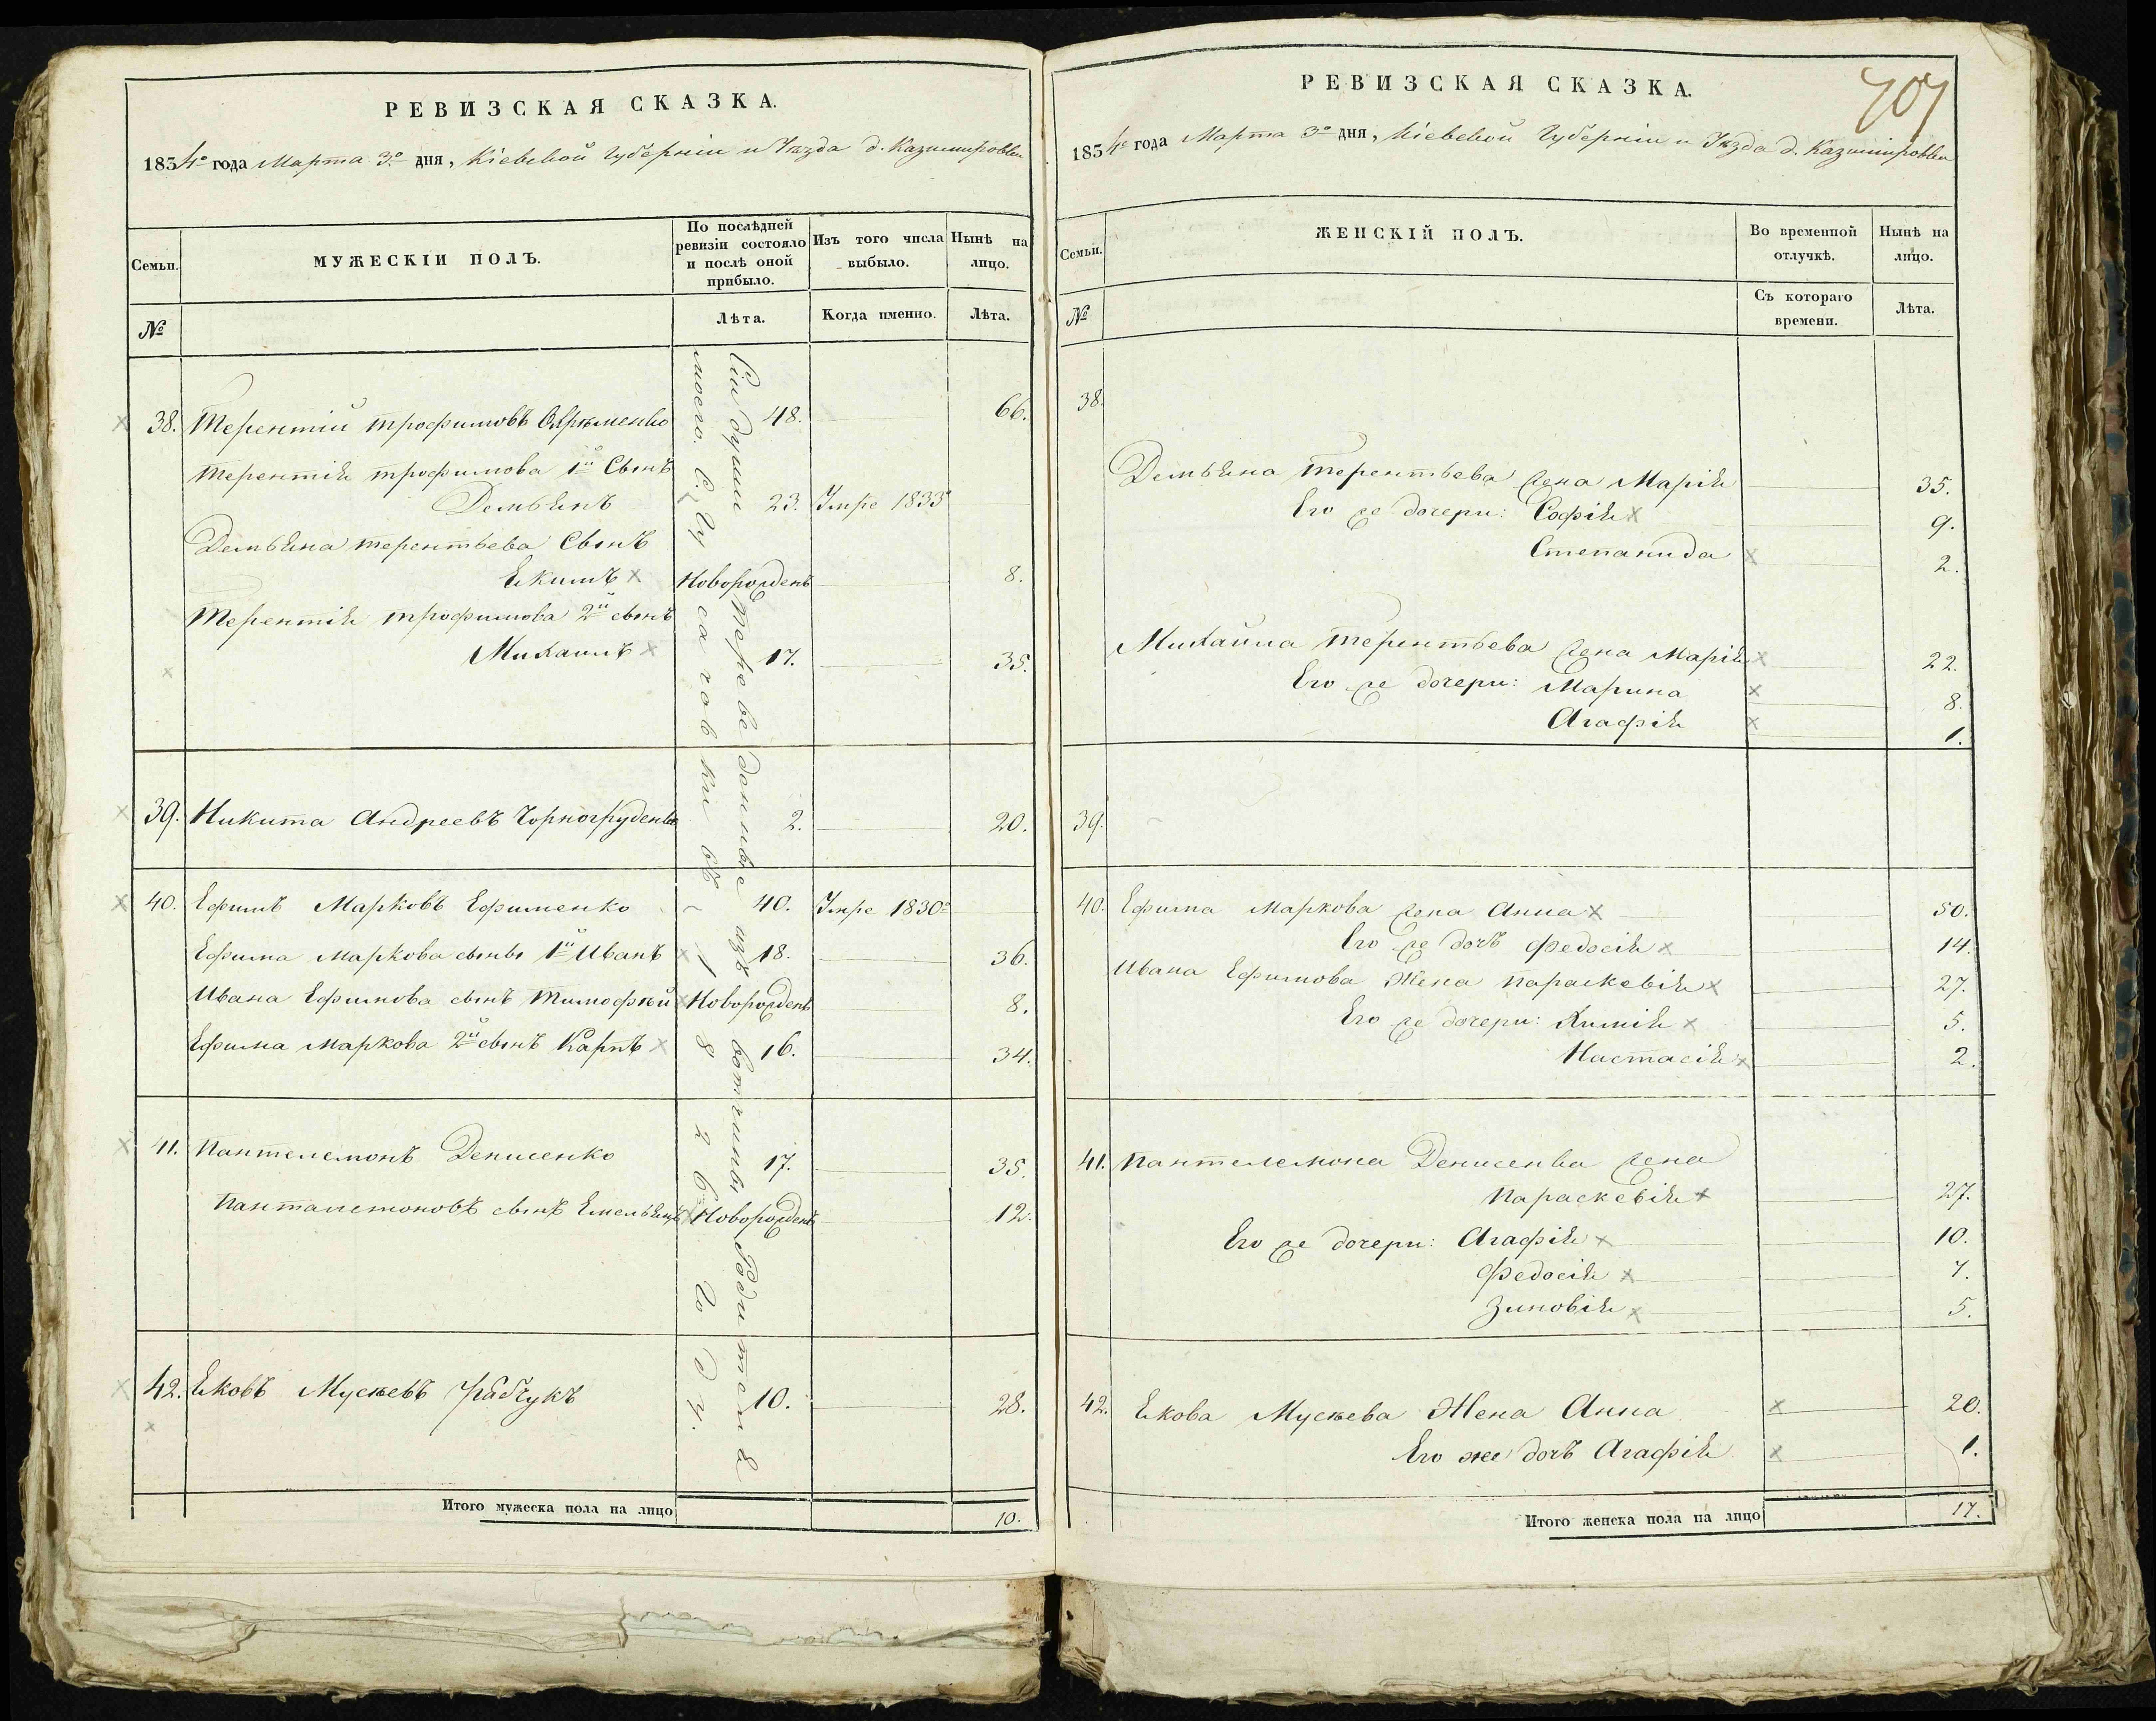 РЕВИЗСКАЯ СКАЗКА.
1834го года Марта 3го дня, Кіевской Губерніи и Уѣзда д. Казимировки
По послѣдней ревизіи состояло и послѣ оной прибыло.
Изъ того числа выбыло.
Нынѣ на лицо.
Семьи.
МУЖЕСКІЙ ПОЛЪ.
№
Лѣта.
Когда именно.
Лѣта.
Сіи души переведенные изъ вотчины Родителя
моего С. Гусаговки въ 1826 году.
38. Терентій Трофимовъ 48. 66.
Терентія Трофимова 1й Сынъ
Демьянъ 23. Умре 1833
Демьяна Терентьева Сынъ
Якимъ Новорожденъ 8.
Терентія Трофимова 2й сынъ
Михаилъ 17. 35.
39. Никита Андреевъ 2. 20.
40. Ефимъ Марковъ Ефименко 40. Умре 1830го
Ефима Маркова сыны 1й Иванъ 18. 36.
Ивана Ефимова сынъ Тимофѣй Новорожденъ 8.
Ефима Маркова 2й сынъ Карпъ 16. 34.
41. Пантелемонъ Денисенко 17. 35.
Панталемоновъ сынъ Емельянъ Новорожденъ 12.
42. Яковъ Мусѣевъ Рабчукъ 10. 28.
Итого мужеска пола на лицо 10.
707
РЕВИЗСКАЯ СКАЗКА.
1834го года Марта 3го дня, Кіевской Губерніи и Уѣзда д. Казимировки
Семьи.
ЖЕНСКІЙ ПОЛЪ.
Во временной отлучкѣ.
Нынѣ на лицо.
№
Съ котораго времени.
Лѣта.
38.
Демьяна Терентьева жена Марія 35.
Его же дочери: Софія 9.
Степанида 2.
Михайла Терентьева жена Марія 22.
Его же дочери: Марина 8.
Агафія 1.
39.
40. Ефима Маркова жена Анна 50.
Его же дочь Федосія 14.
Ивана Ефимова Жена Параскевія 27.
Его же дочери: Химія 5.
Настасія 2.
41. Пантелемона Денисенка жена
Параскевія 27.
Его же дочери: Агафія 10.
Федосія 7.
Зиновія 5.
42. Якова Мусѣева Жена Анна 20.
Его же дочь Агафія 1.
Итого женска пола на лицо 17.